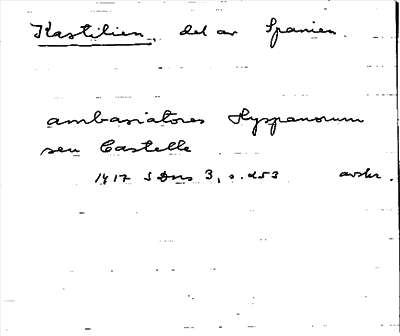 Kastilien, del av Spanien.
ambasiatores Hyspanorum
seu Castelle
1417 S Dns 3, s. 253 avskr.